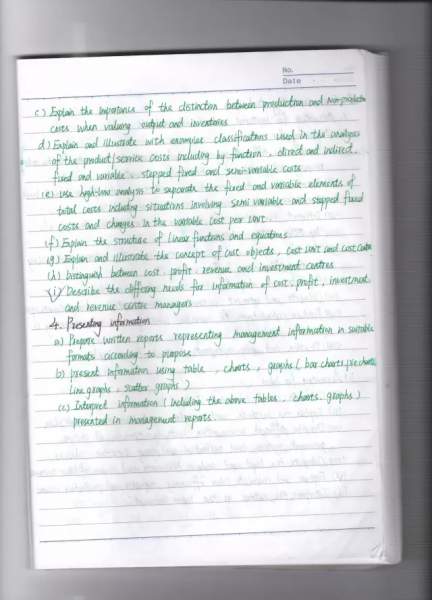 No.
Date
c) Explain the importance of the distinction between production and non-production
costs when valuing output and inventories
d) Explain and illustrate with examples classifications used in the analysis
of the product/service costs including by function, direct and indirect,
fixed and variable, stepped fixed and semi-variable costs
(e) use high-low analysis to separate the fixed and variable elements of
total costs including situations involving semi variable and stepped fixed
costs and changes in the variable cost per unit.
(f) Explain the structure of linear functions and equations
(g) Explain and illustrate the concept of cost objects, cost unit and cost center
(h) Distinguish between cost, profit, revenue and investment centres
(i) Describe the differing needs for information of cost, profit, investment
and revenue centre managers
4. Presenting information
a) Prepare written reports representing management information in suitable
formats according to purpose
b) present information using table, charts, graphs (bar charts, pie charts,
line graphs, scatter graphs)
(c) Interpret information (including the above tables, charts, graphs)
presented in management reports.